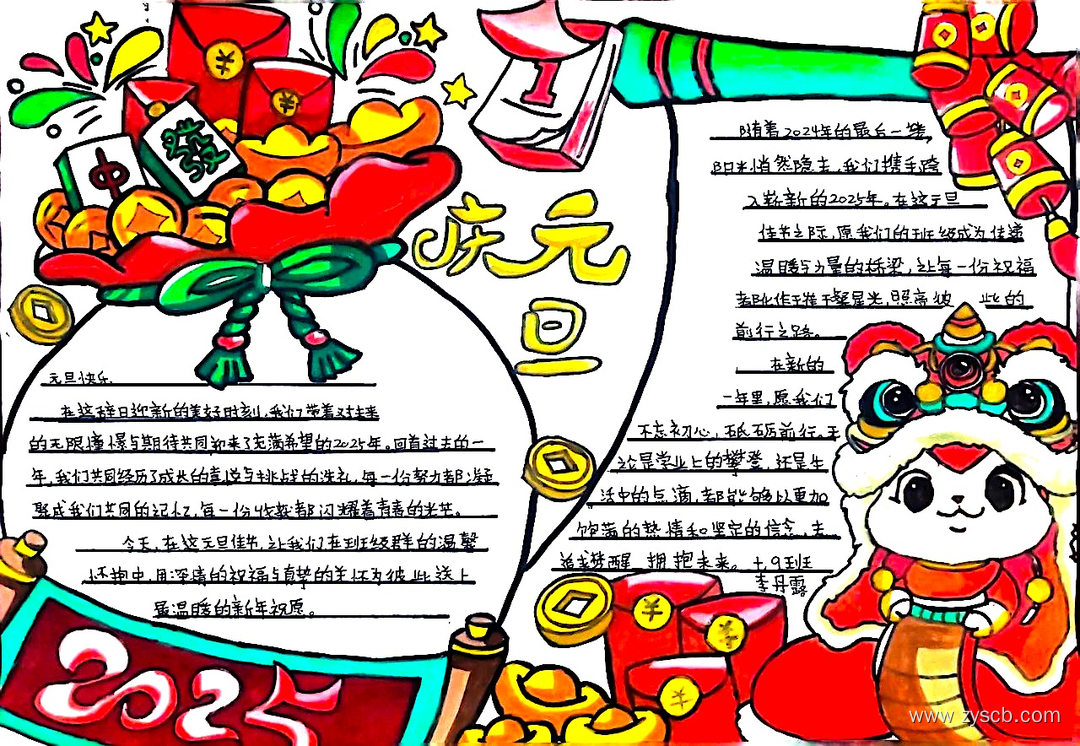 中
發
1
庆元
旦
元旦快乐
在这辞旧迎新的美好时刻,我们带着对未来
的无限憧憬与期待共同迎来了充满希望的2025年。回首过去的一
年,我们共同经历了成长的喜悦与挑战的洗礼,每一份努力都凝
聚成我们共同的记忆,每一份收获都闪耀着青春的光芒。
今天,在这元旦佳节,让我们在班级群的温馨
怀抱中,用深情的祝福与真挚的关怀为彼此送上
最温暖的新年祝愿。
2025
随着2024年的最后一缕
阳光悄然隐去,我们携手跨
入崭新的2025年。在这元旦
佳节之际,愿我们的班级成为传递
温暖与力量的桥梁,让每一份祝福
都化作璀璨星光,照亮彼此的
前行之路。
在新的
一年里,愿我们
不忘初心,砥砺前行,无
论是学业上的攀登,还是生
活中的点滴,都能够以更加
饱满的热情和坚定的信念,去
追或梦醒 拥抱未来。十.9班
李丹露
¥
¥
¥
¥
¥
www.zyscb.com